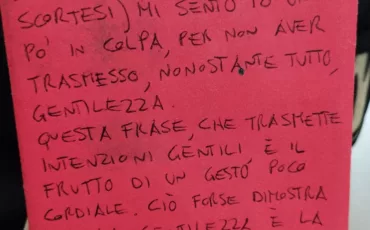 SCORTESI) MI SENTO IO UN
PO' IN COLPA, PER NON AVER
TRASMESSO, NONOSTANTE TUTTO,
GENTILEZZA.
QUESTA FRASE, CHE TRASMETTE
INTENZIONI GENTILI, È IL
FRUTTO DI UN GESTO POCO
CORDIALE. CIÒ FORSE DIMOSTRA
GENTILEZZA È LA